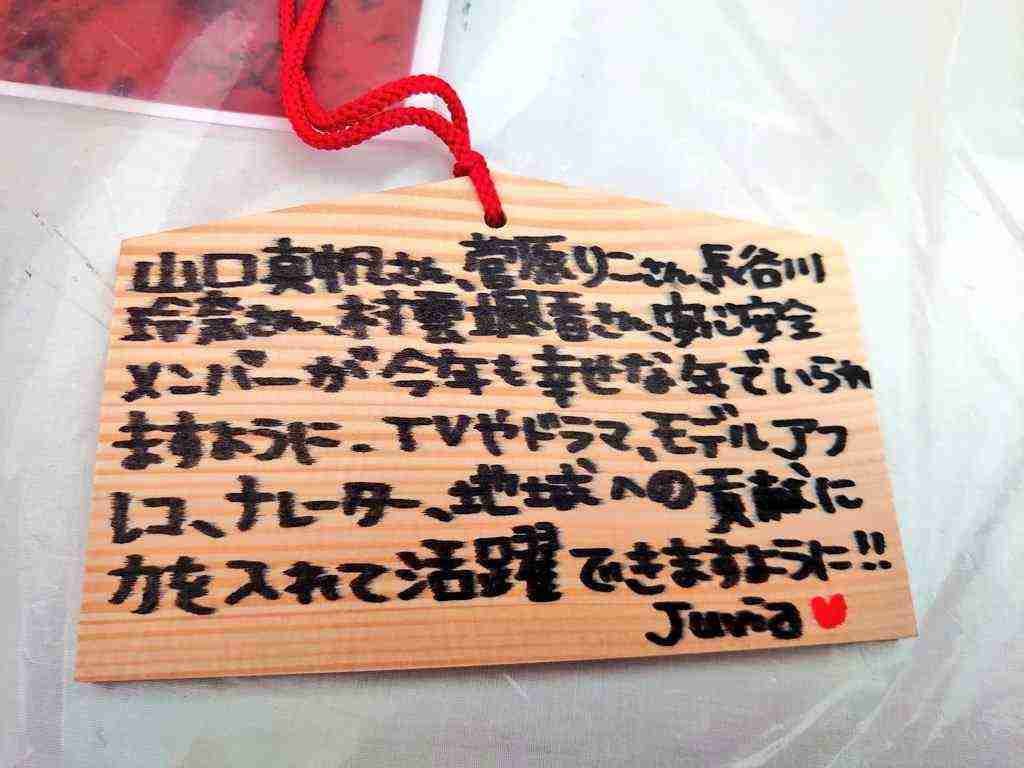 山口真帆さん、菅原りこさん、長谷川
玲奈さん、村雲颯香さん、安心安全
メンバーが今年も幸せな年でいられ
ますように。TVやドラマ、モデルアフ
レコ、ナレーター、地域への貢献に
力を入れて活躍できますように!!
Juria